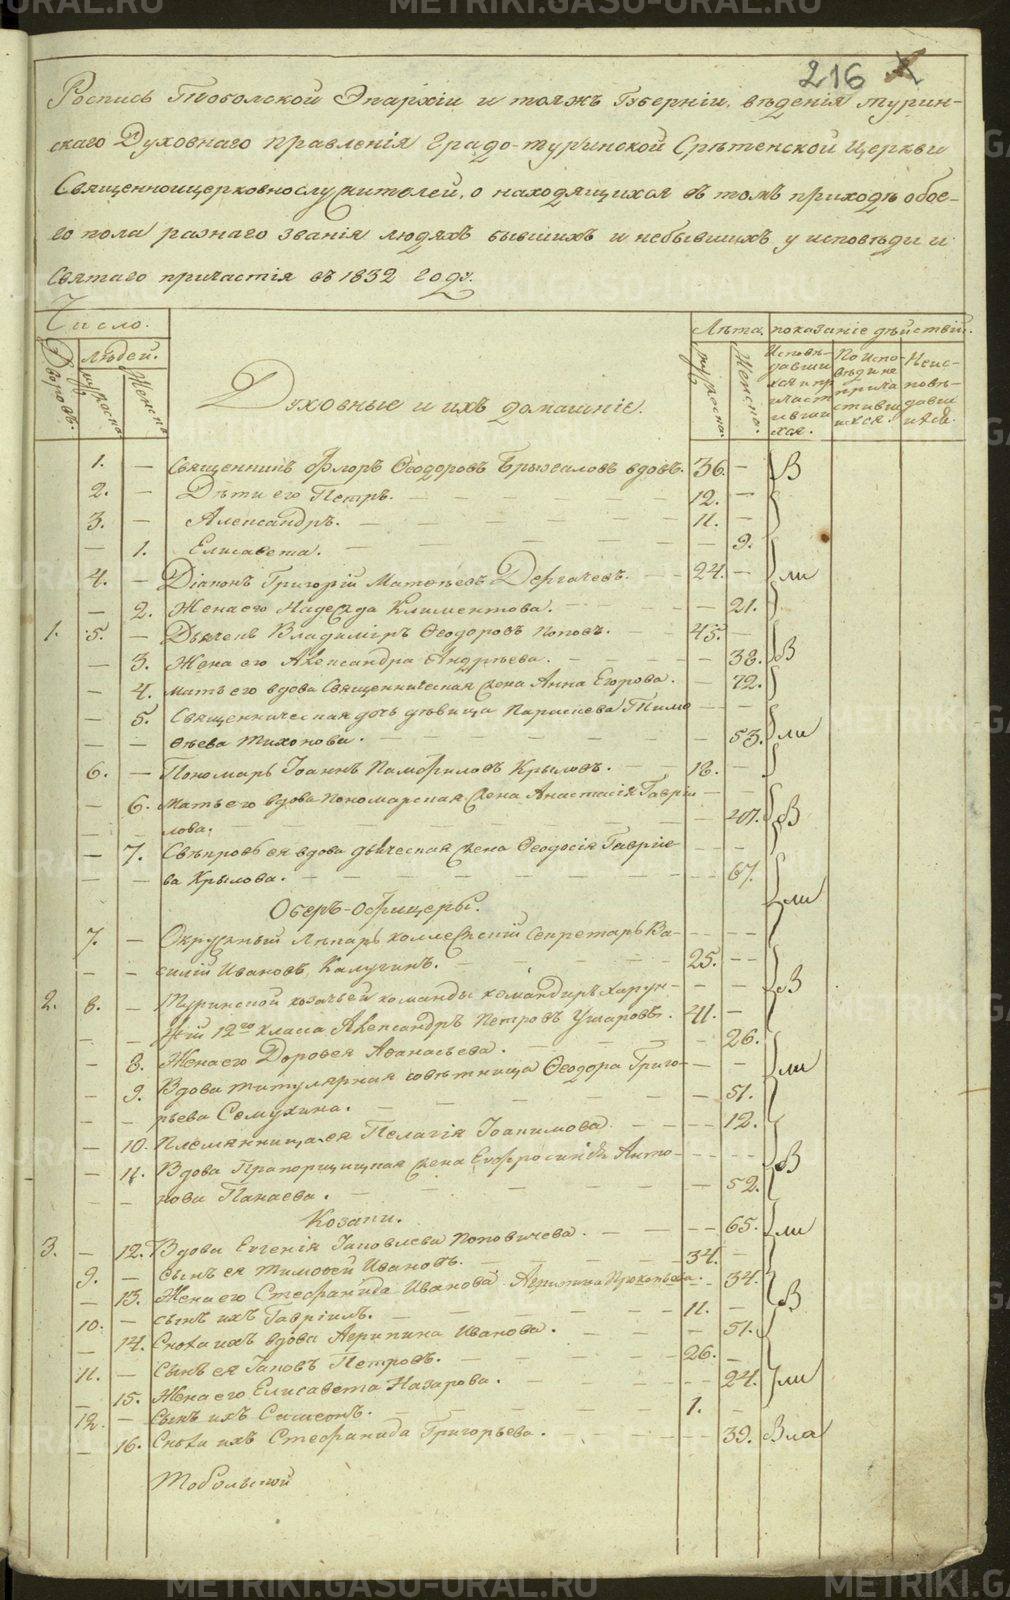 METRIKI.GASO-URAL.RU
216
Роспись Тобольской Эпархіи и тояжъ Губерніи, вѣденія Турин-
скаго Духовнаго правленія Градо-туринской Срѣтенской Церкви
Священноицерковнослужителей, о находящихся въ томъ приходѣ обое-
го пола разнаго званія людяхъ бывшихъ и небывшихъ у исповѣди и
Святаго причастія въ 1832 Году.
Число. Лѣта. показаніе дѣйствій.
Дворовъ. людей. мужеска. Женска. Духовные и ихъ домашніе. мужеска. Женска. Исповѣдавшихся и причастившихся. По исповѣди не причастившихся. Неисповѣдавшихся.
1. — Священникъ Флоръ Ѳеодоровъ вдовъ. 36. — В
2. — Дѣти его Петръ. — 12. —
3. — Александръ. — 11. —
— 1. Елисавета. — 9.
4. — Діаконъ Григорій Матѳѣевъ Дергачевъ. — 24. — ли
— 2. Жена его Надежда Климентова. — 21.
1. 5. — Дьячекъ Владиміръ Ѳеодоровъ Поповъ. — 45. —
— 3. Жена его Александра Андрѣева. — 38. В
— 4. мать его вдова Священническая жена Анна Егорова. — 72.
— 5. Священническая дочь дѣвица Параскева Тимо
ѳѣева Тихонова. — 53. ли
6. — Пономарь Іоаннъ Памфиловъ Крыловъ. — 18. —
— 6. Мать его вдова Пономарская жена Анастасія Гаври
лова. — 47. В
— 7. Свѣкровь ея вдова дьяческая жена Ѳеодосія Гаврiе-
ва Крылова. — 67.
Оберъ-Офицеры. ли
7. — Окружный Лѣкарь коллежскій секретарь Ва-
силій Ивановъ Калугинъ. — 25. —
2. 8. — Туринской козачьей команды командиръ хорун- В
жій 12го класса Александръ Петровъ Ушаровъ. 41. —
— 8. Жена его Дороѳея Аѳанасьева. — 26.
— 9. Вдова титулярная совѣтница Ѳеодора Григо- ли
рьева Семухина. — 51.
— 10. Племянница ея Пелагія Іоакимова. — 12.
— 11. Вдова Прапорщицкая жена Евфросинія Анто- В
нова Панаева. — 52.
Козаки.
3. — 12. Вдова Евгенія Іаковлева Поповичева. — 65. ли
9. — сынъ ея Тимоѳей Ивановъ. — 34. —
— 13. Жена его Стефанида Иванова 34.
10. — сынъ ихъ Гавріилъ. — 11. — В
— 14. Сноха ихъ вдова Агрипина Иванова. — 51.
11. — Сынъ ея Іаковъ Петровъ. — 26. —
— 15. Жена его Елисавета Назарова. — 24. ли
12. — Сынъ ихъ Симеонъ. — 1.
— 16. Сноха ихъ Стефанида Григорьева. — 39. Вла
Тобольской
METRIKI.GASO-URAL.RU